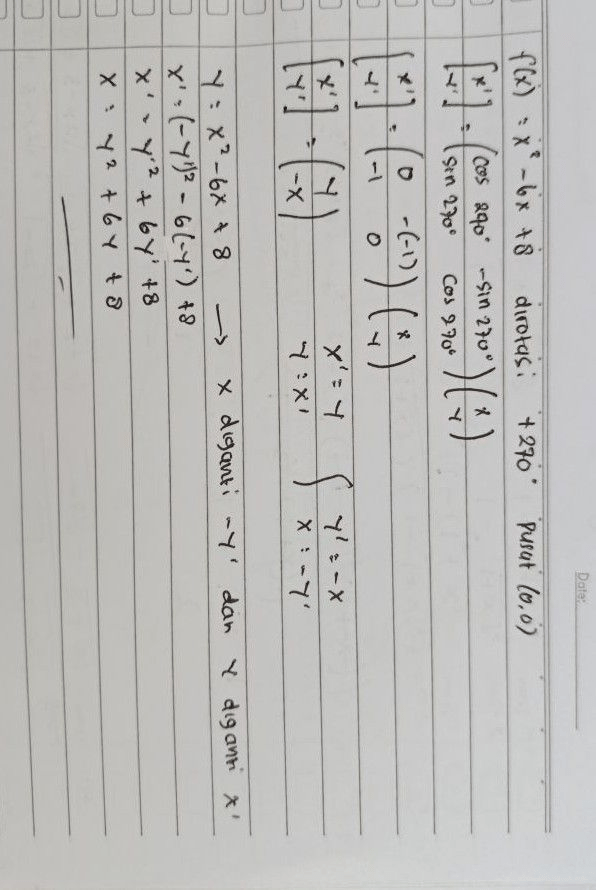 Date:
f(x) = x² - 6x + 8 dirotasi +270° pusat (0,0)
[x' y'] = (cos 270° -sin 270° sin 270° cos 270°) (x y)
[x' y'] = (0 -(-1) -1 0) (x y)
[x' y'] = (y -x) x' = y y = x' ∫ y' = -x x = -y'
y = x² - 6x + 8 → x diganti -y' dan y diganti x'
x' = (-y')² - 6(-y') + 8
x' = y'² + 6y' + 8
x = y² + 6y + 8